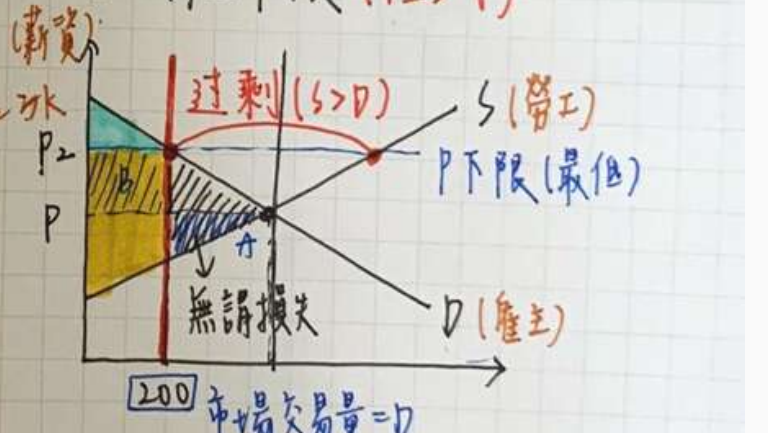 (薪資)
过剩(S>D)
S(勞工)
P2
P下限(最低)
B
P
A
無謂損失
D(雇主)
200
市場交易量=D